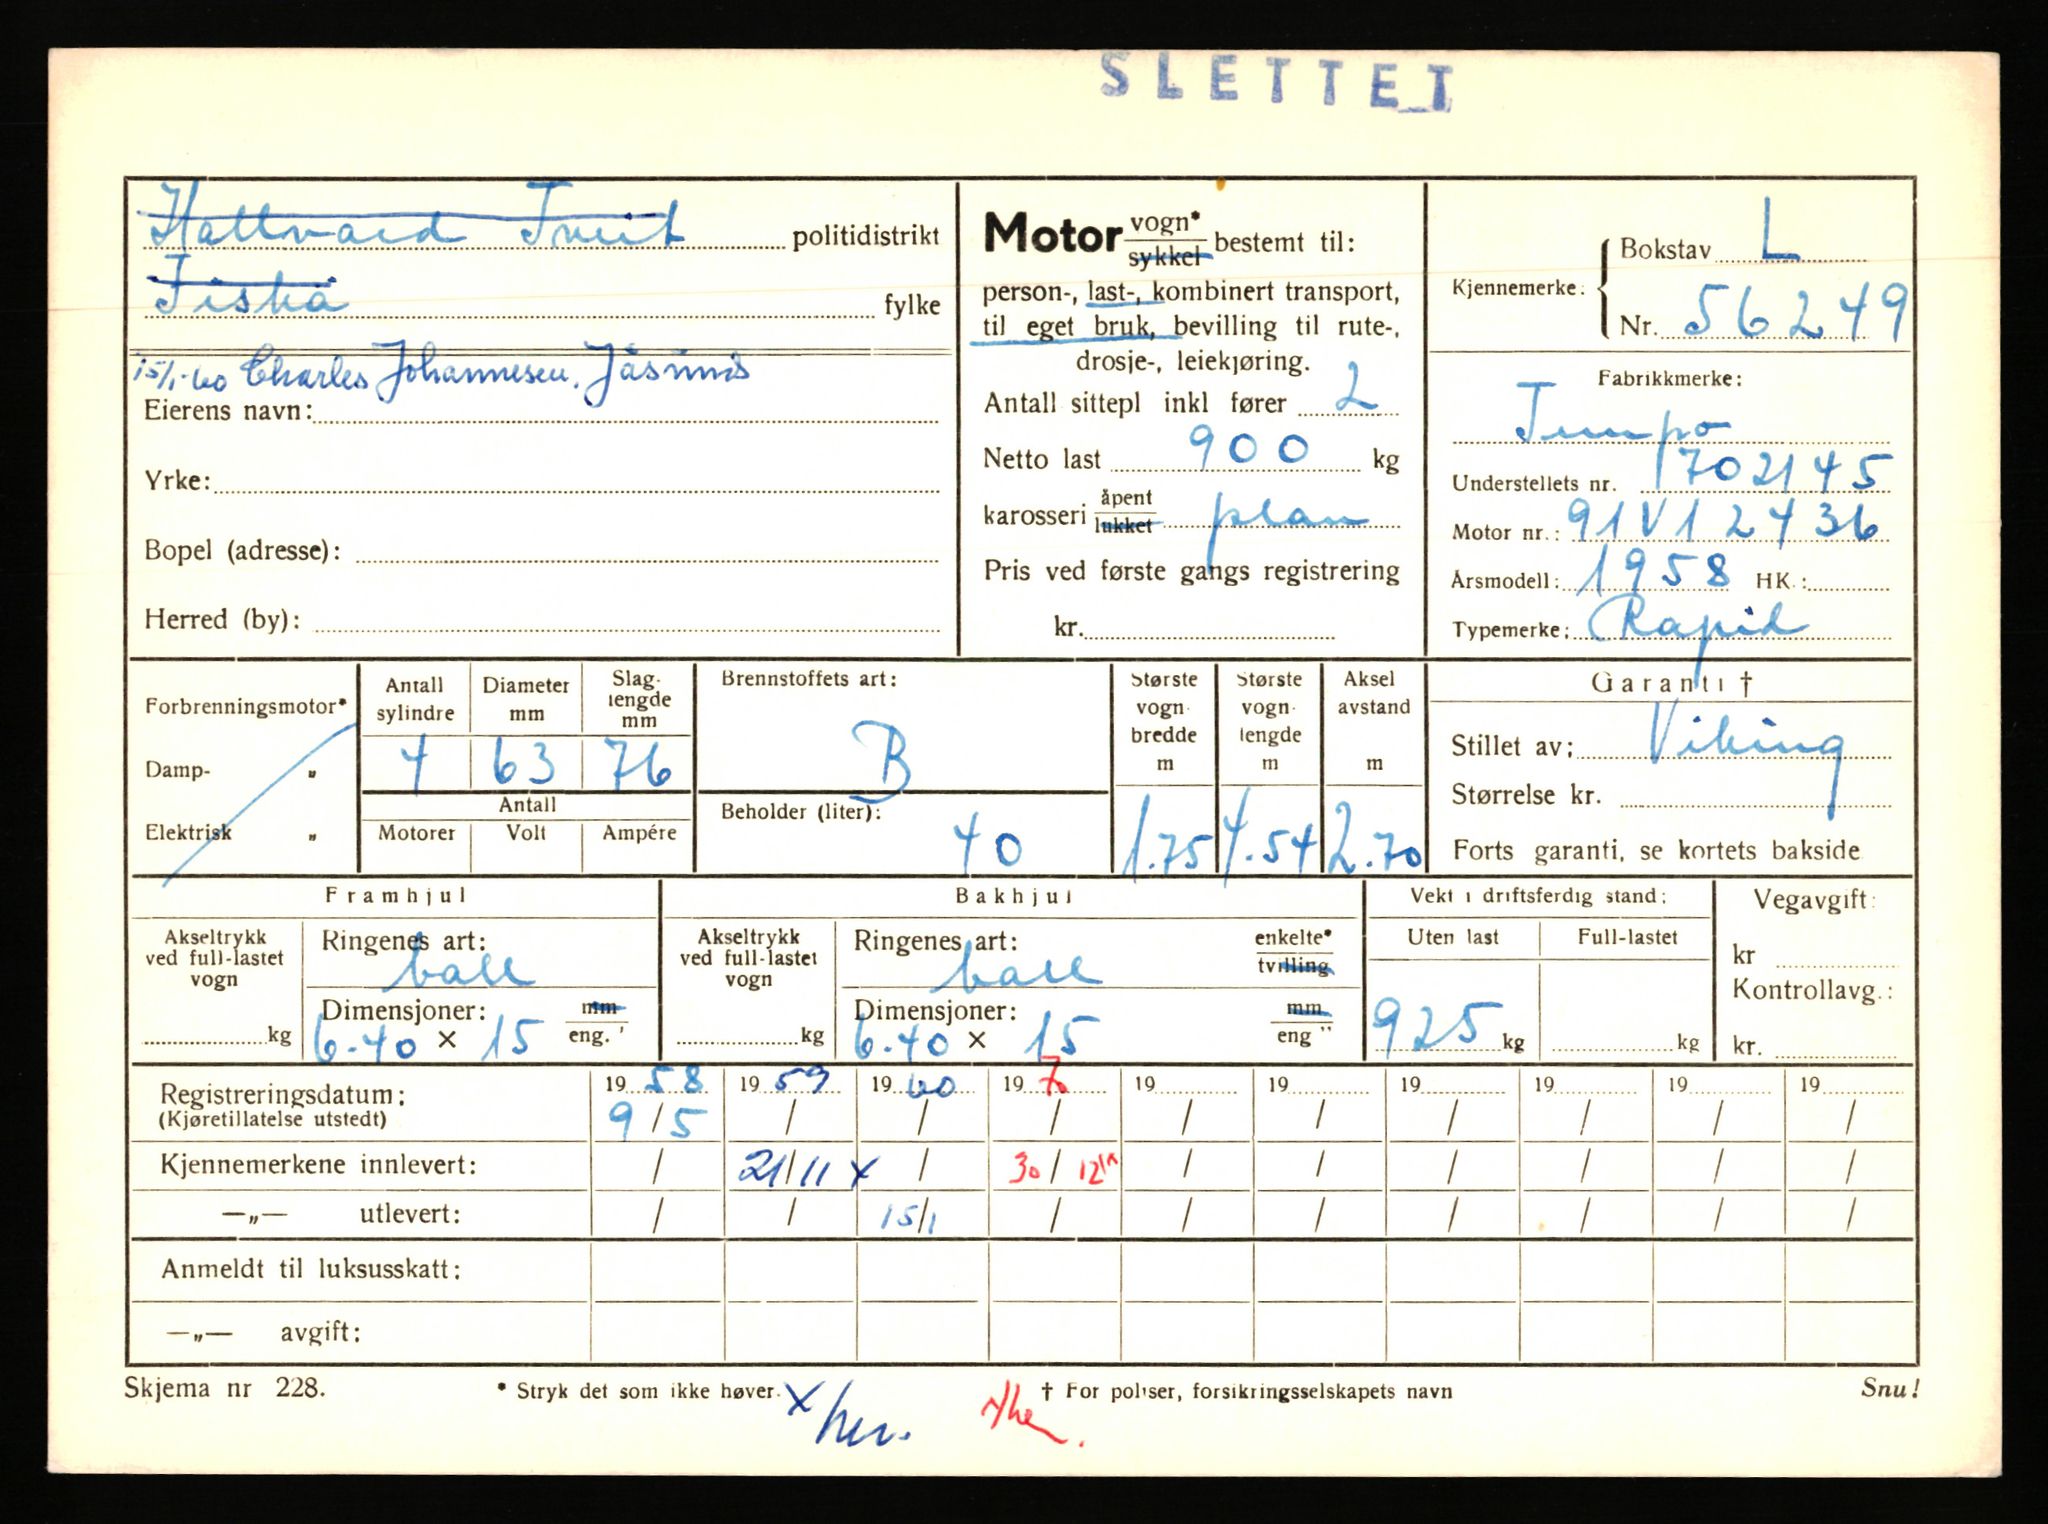 SLETTET
Hallvard Tveit politidistrikt
Fiskå fylke
15/1-60 Charles Johannesen, Jåsund
Eierens navn:
Yrke:
Bopel (adresse):
Herred (by):
Motor vogn* / sykkel bestemt til:
person-, last-, kombinert transport,
til eget bruk, bevilling til rute-,
drosje-, leiekjøring.
Antall sittepl inkl fører 2
Netto last 900 kg
karosseri åpent / lukket plan
Pris ved første gangs registrering
kr.
Kjennemerke: Bokstav L
Nr. 56249
Fabrikkmerke:
Tempo
Understellets nr. 1702145
Motor nr.: 91V12436
Årsmodell: 1958 HK.:
Typemerke: Rapid
Forbrenningsmotor*
Damp- "
Elektrisk "
Antall sylindre 4
Diameter mm 63
Slaglengde mm 76
Antall
Motorer Volt Ampére
Brennstoffets art:
B
Beholder (liter):
40
Største vognbredde m 1.75
Største vognlengde m 4.54
Aksel avstand m 2.70
Garanti †
Stillet av: Viking
Størrelse kr.
Forts garanti, se kortets bakside
Framhjul
Akseltrykk ved full-lastet vogn kg
Ringenes art:
ball
Dimensjoner: mm / eng.'
6.40 × 15
Bakhjul
Akseltrykk ved full-lastet vogn kg
Ringenes art: enkelte* / tvilling
ball
Dimensjoner: mm / eng"
6.40 × 15
Vekt i driftsferdig stand:
Uten last Full-lastet
925 kg kg
Vegavgift:
kr
Kontrollavg.:
kr.
Registreringsdatum: 1958 1959 1960 1970 19 19 19 19 19 19
(Kjøretillatelse utstedt) 9/5 / / / / / / / / /
Kjennemerkene innlevert: / 21/11 x / 30/12 / / / / / /
—„— utlevert: / / 15/1 / / / / / / /
Anmeldt til luksusskatt:
—„— avgift:
Skjema nr 228. * Stryk det som ikke høver. † For poliser, forsikringsselskapets navn Snu!